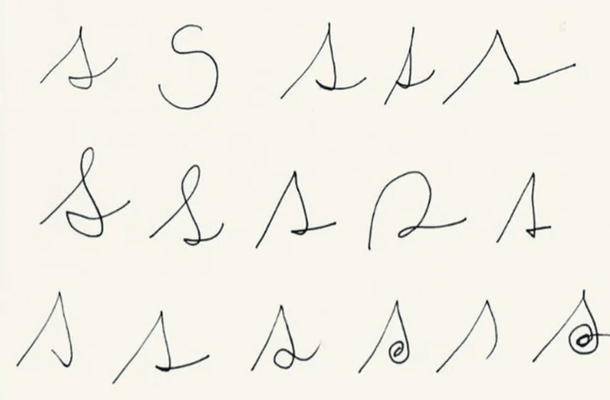 s S s s s
s s s s s
s s s s s s